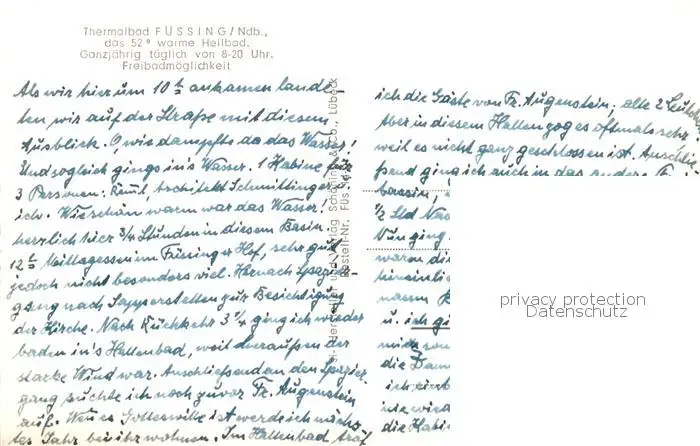 Thermalbad FÜSSING/Ndb.,
das 52° warme Heilbad.
Ganzjährig täglich von 8-20 Uhr.
Freibadmöglichkeit
Als wir hier um 10 h ankamen lande-
ten wir auf der Straße mit diesem
Ausblick. O wie dampfte da das Wasser!
Und sogleich gings in's Wasser. 1 Kabine für
3 Personen: Architekt Schmittinger
ich. Wie schön warm war das Wasser!
herrlich hier 3/4 Stunden in diesem Basin.
12 h Mittagessen im Füssinger Hof, sehr gut
jedoch nicht besonders viel. Hernach Spazier-
gang nach Safferstetten zur Besichtigung
der Kirche. Nach Rückkehr 3 1/4 ging ich wieder
baden in's Hallenbad, weil heraußen der
starke Wind war. Anschließend an den Spazier-
gang suchte ich noch zuvor Fr. Augenstein
auf. Wenn es Gotteswille ist werde ich nächs-
tes Jahr bei ihr wohnen. Im Hallenbad traf
ich die Gäste von Fr. Augenstein, alte 2 Leutch
Aber in diesem Hallen zog es oftmals sehr
weil es nicht ganz geschlossen ist. Anschlie-
ßend ging ich auch in das
bassin,
1/2 Std
Nun ging
waren die
hineinlich
nassen
u. ich gi
mich son
die Dam
ich
nie wied
die Kabi
Verlag Schöning & Co., Lübeck
Bestell-Nr. Füs
privacy protection
Datenschutz